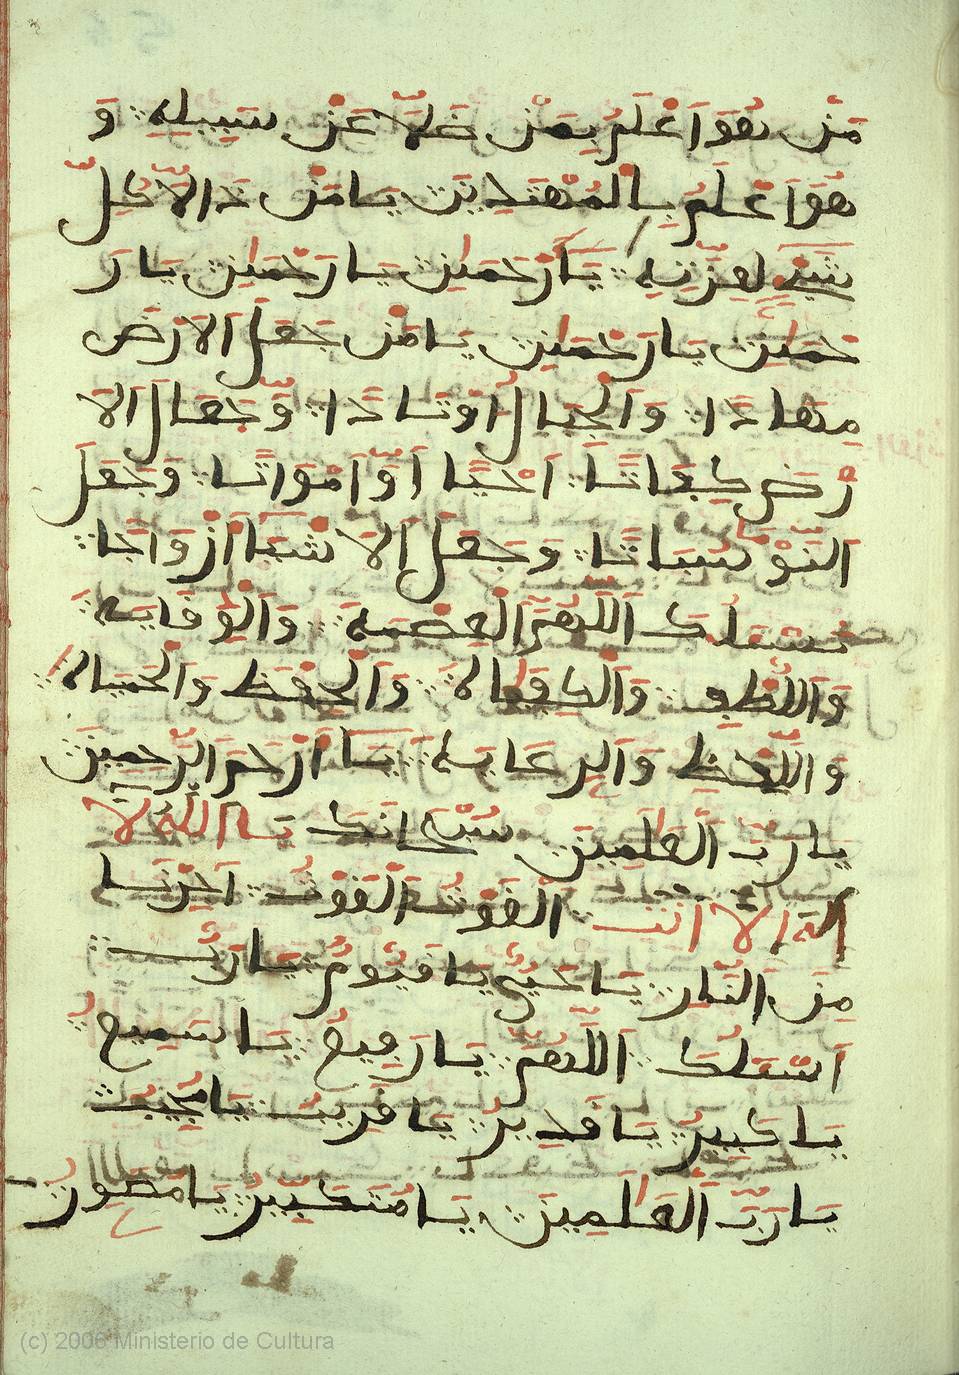 مَنْ هُوَ اَعْلَمُ بِمَنْ ضَلَّا عَنْ سَبِيلِهِ وَ
هُوَ اَعْلَمُ بِالْمُهْتَدِينَ يَا مَنْ ذَالَّا كُلُّ
شَيْءٍ لِعِزَّتِهِ يَا رَحْمَٰنُ يَا رَحْمَٰنُ يَا رَ
حْمَٰنُ يَا رَحْمَٰنُ يَا مَنْ جَعَلَ الَارْضَ
مِهَادًا وَالْجِبَالَ اَوْتَادًا وَّجَعَلَ الَا
رْضَ كِفَاتًا اَحْيَا اَوَّ اَمْوَاتًا وَجَعَلَ
النَّوْمَ سُبَاتًا وَجَعَلَ الَاشْيَا اَزْوَاجًا
نَسْئَلُكَ اللَّهُمَّ الْعِصْمَةَ وَالْوِقَايَةَ
وَاللُّطْفَ وَالْكِفَالَةَ وَالْحِفْظَ وَالْحِيَالَةَ
وَاللَّحْظَ وَالرِّعَايَةَ يَا اَرْحَمَ الرَّحِمِينَ
يَا رَبَّ الْعَٰلَمِينَ سُبْحَانَكَ يَا اللَّهُ لَا
اِلَهَ اِلَّا اَنْتَ الْغَوْثُ الْغَوْثُ اَجِرْنَا
مِنَ النَّارِ يَا حَيُّ يَا قَيُّومُ يَا رَبُّ
اَسْئَلُكَ اللَّهُمَّ يَا رَفِيعُ يَا سَمِيعُ
يَا كَبِيرُ يَا قَدِيرُ يَا قَرِيبُ يَا مُجِيبُ
يَا رَبَّ الْعَٰلَمِينَ يَا مُتَكَبِّرُ يَا مُصَوِّرُ
(c) 2006 Ministerio de Cultura